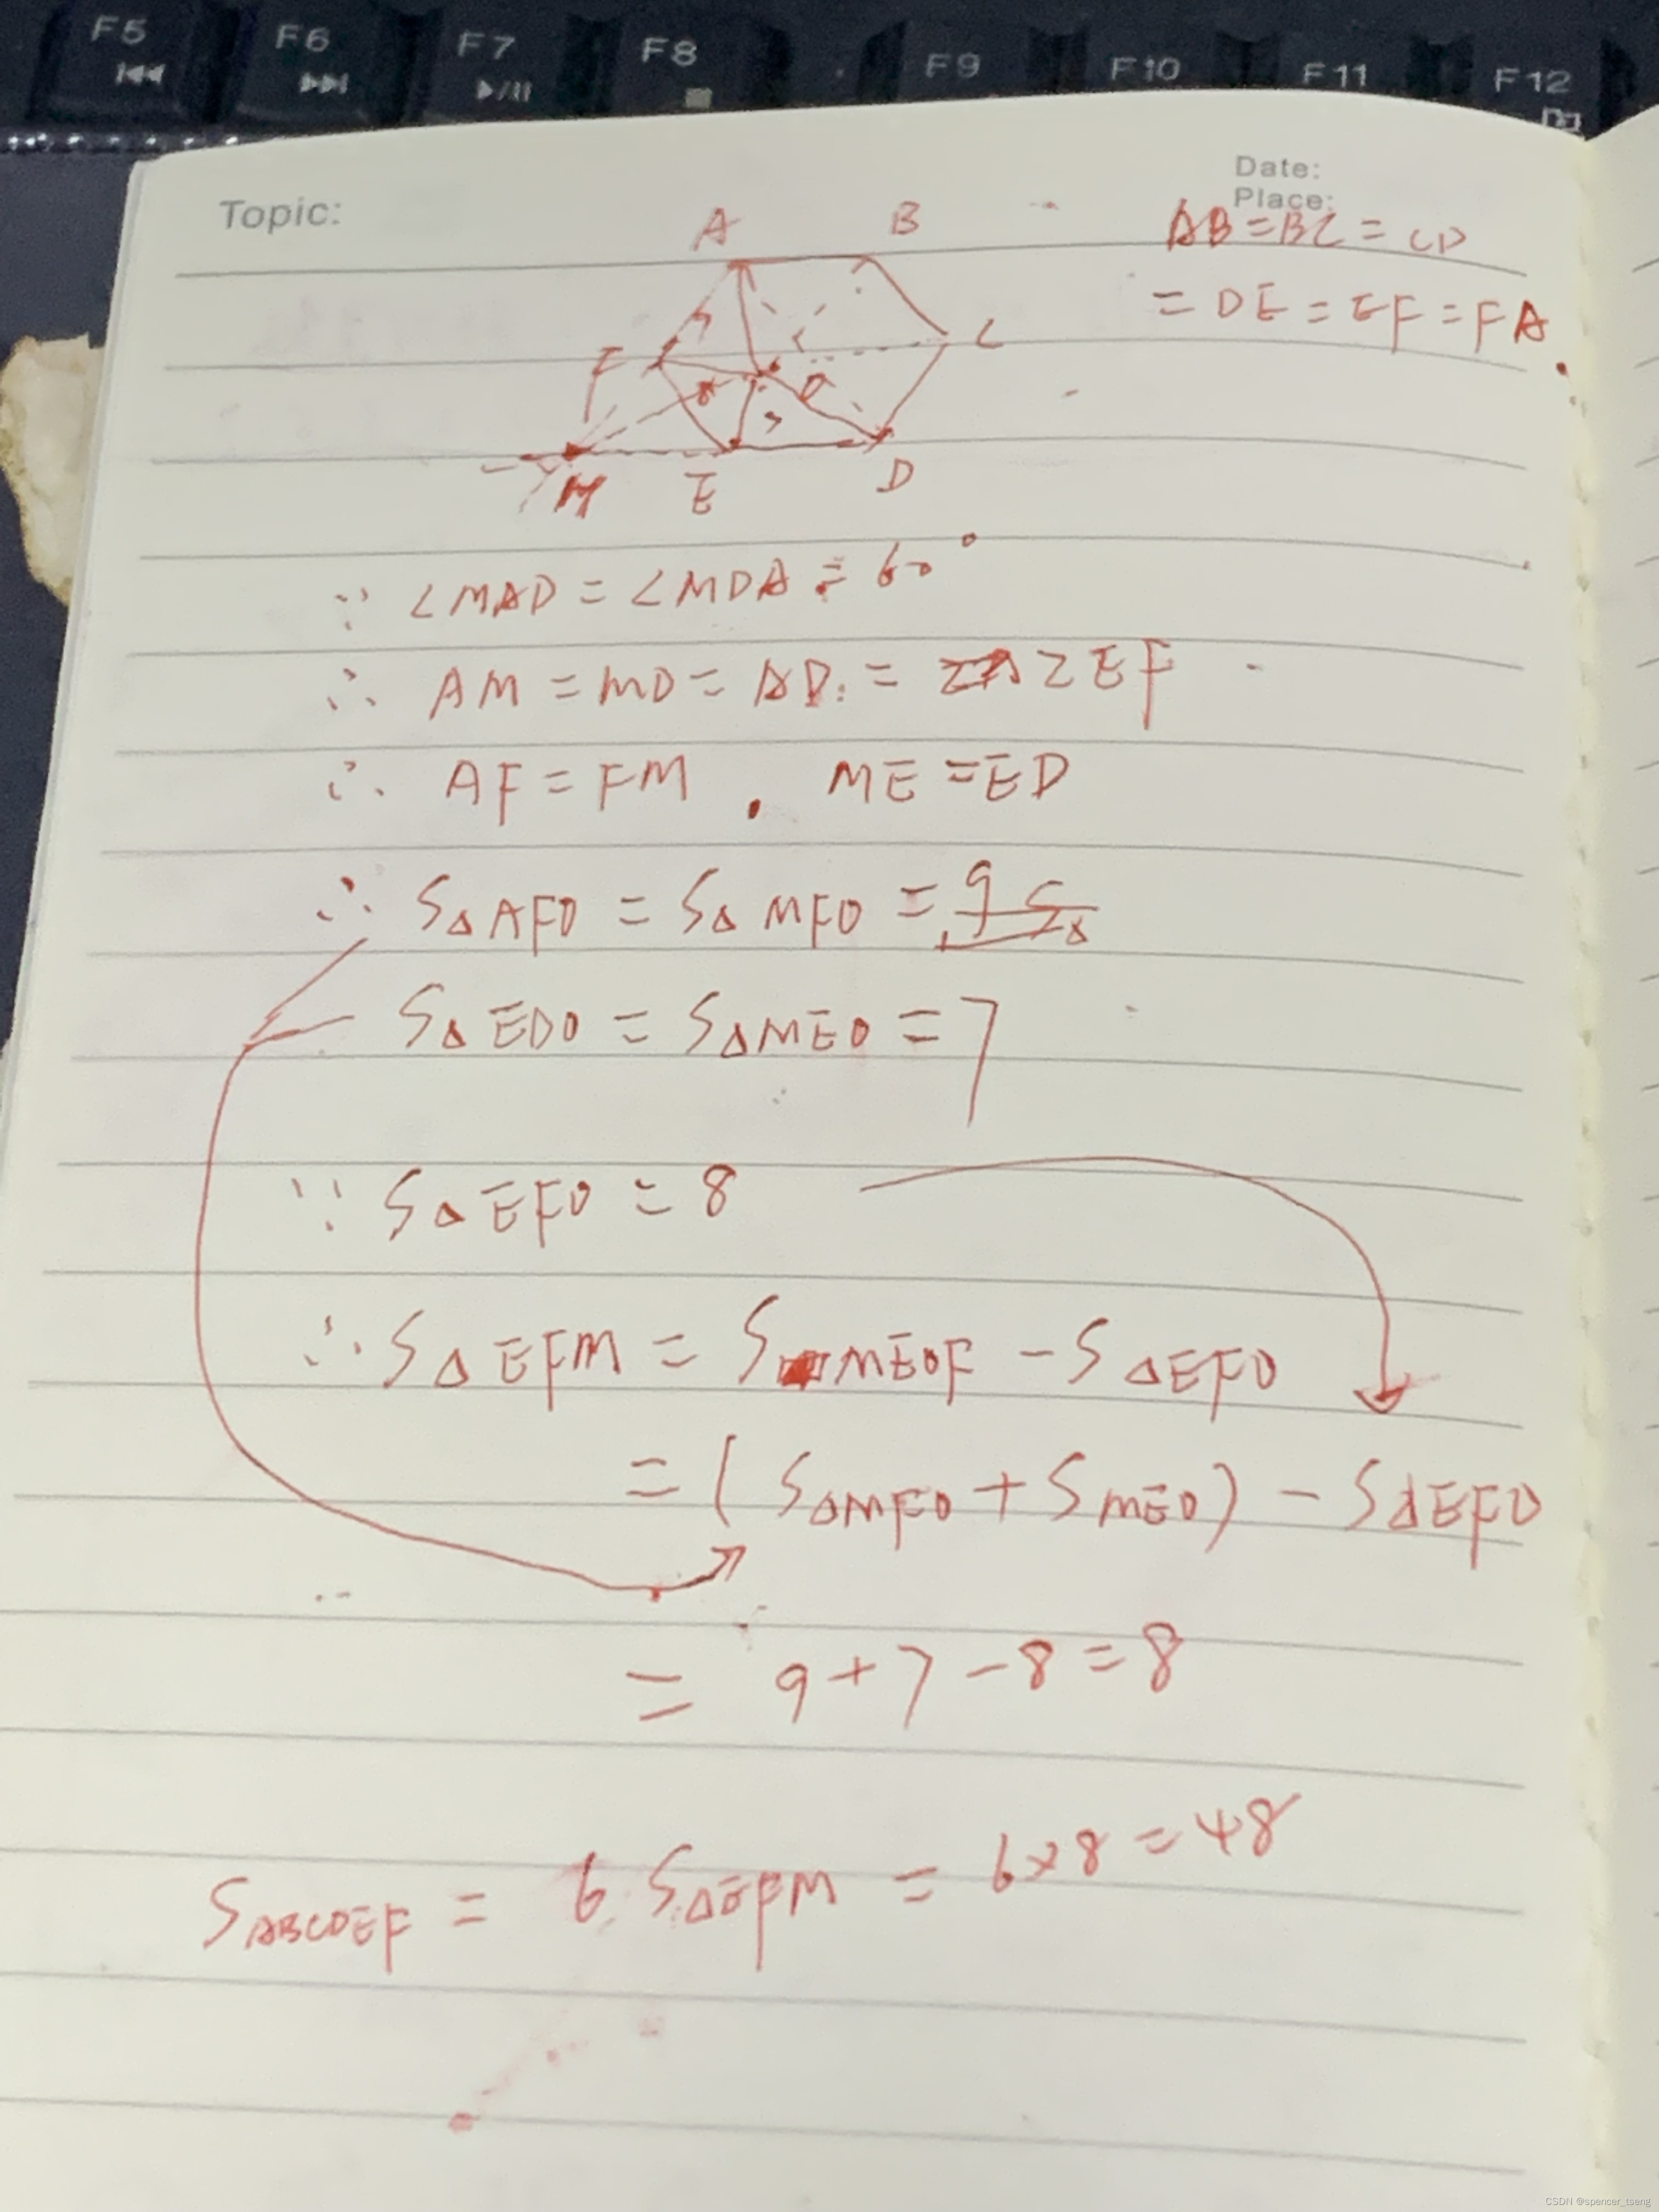 F5 F6 F7 F8 F9 F10 F11 F12
Topic:
Date:
Place:
AB=BC=CD
=DE=EF=FA.
A B
F C
O
M E D
∵ ∠MAD = ∠MDA = 60°
∴ AM = MD = AD = 2EF
∴ AF = FM , ME = ED
∴ S△AFO = S△MFO = 9
S△EDO = S△MEO = 7
∵ S△EFO = 8
∴ S△EFM = S□MEOF - S△EFO
= (S△MFO + SMEO) - S△EFO
= 9+7-8=8
SABCDEF = 6 S△EFM = 6×8=48
CSDN @spencer_tseng